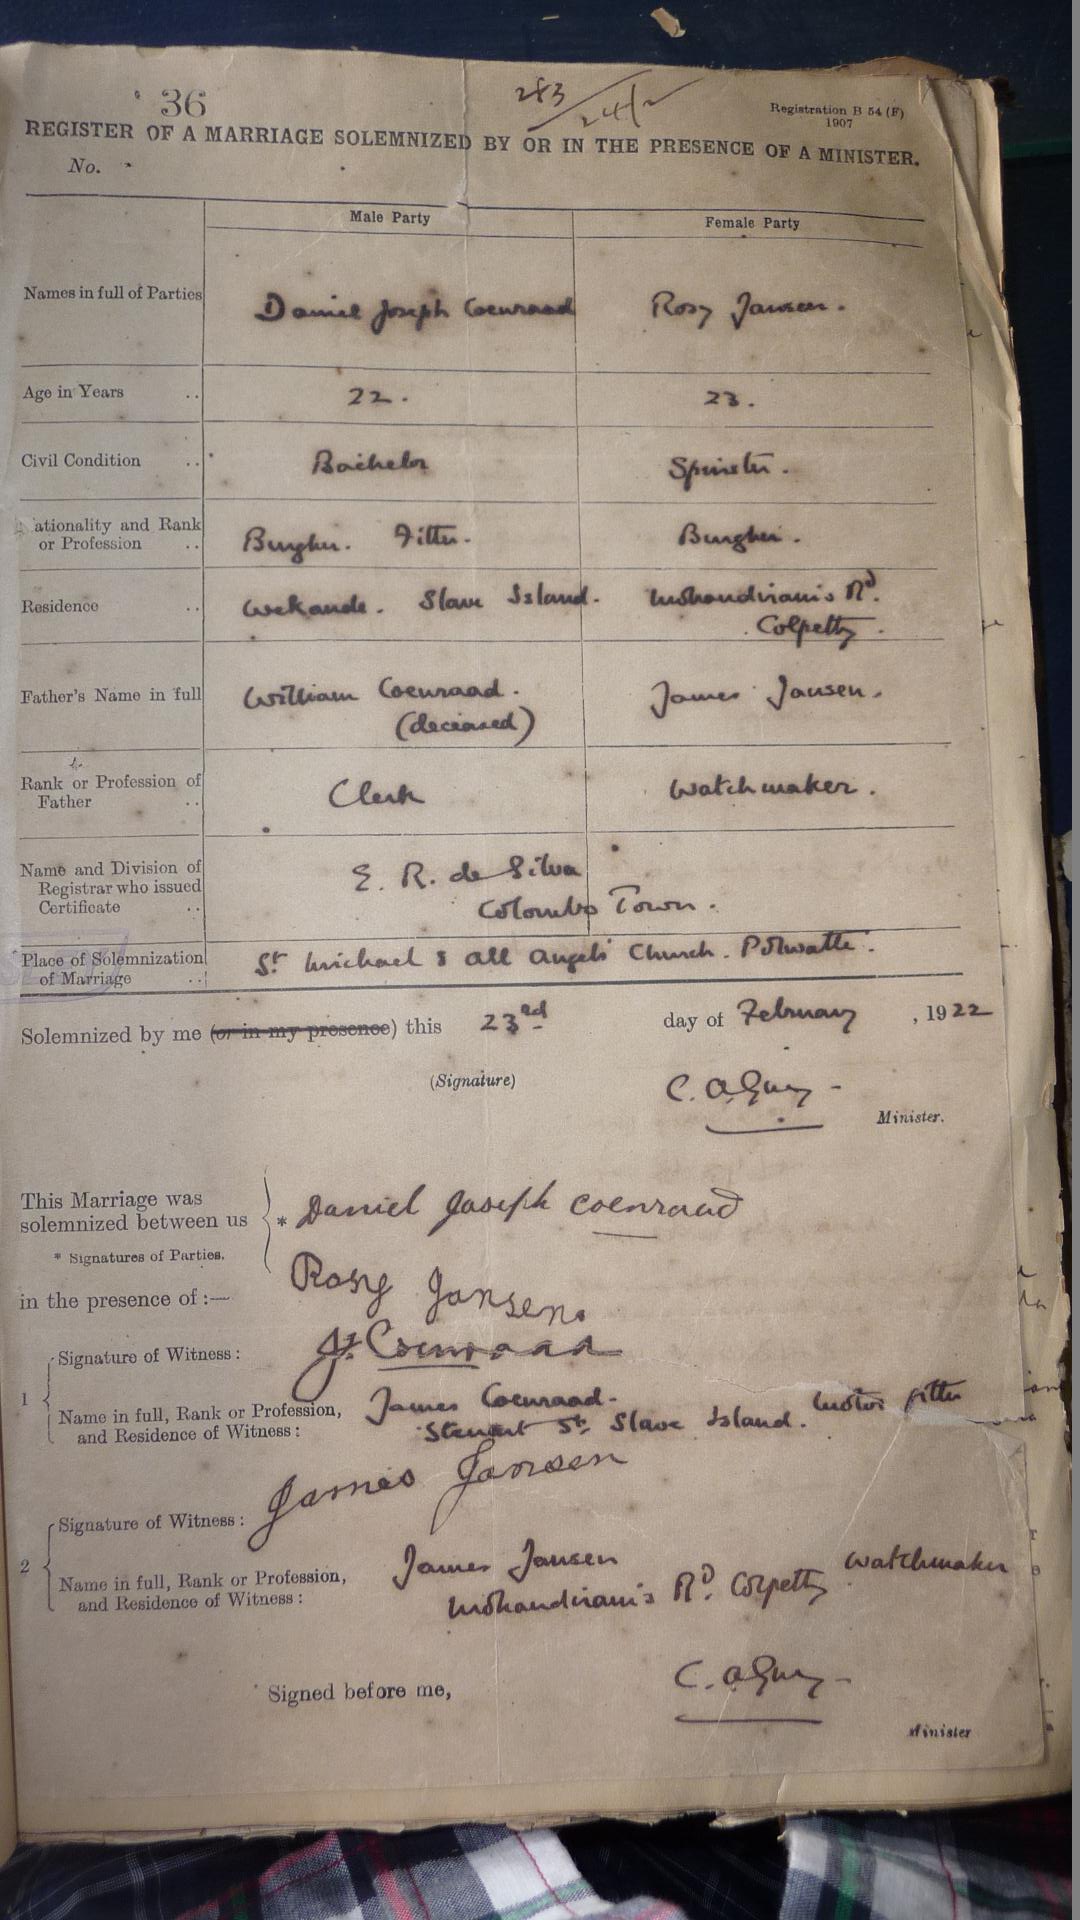 36
283/24/2
Registration B 54 (F)
1907
REGISTER OF A MARRIAGE SOLEMNIZED BY OR IN THE PRESENCE OF A MINISTER.
No.
Male Party Female Party
Names in full of Parties Daniel Joseph Coenraad Rosy Jansen.
Age in Years .. 22. 23.
Civil Condition .. Bachelor Spinster.
ationality and Rank
or Profession .. Burgher. Fitter. Burgher.
Residence .. Wekande. Slave Island. Mohandiram's Rd.
Colpetty.
Father's Name in full William Coenraad. James Jansen.
(deceased)
Rank or Profession of
Father .. Clerk Watchmaker.
Name and Division of
Registrar who issued
Certificate .. E. R. de Silva
Colombo Town.
Place of Solemnization
of Marriage .. St Michael & All Angels' Church. Polwatte.
Solemnized by me (or in my presence) this 23rd day of February, 1922
(Signature) C.
Minister.
This Marriage was
solemnized between us * Daniel Joseph Coenraad
* Signatures of Parties.
Rosy Jansen.
in the presence of :—
Signature of Witness: J. Coenraad
1
Name in full, Rank or Profession,
and Residence of Witness: James Coenraad. Motor fitter
Stewart St. Slave Island.
Signature of Witness: James Jansen
2
Name in full, Rank or Profession,
and Residence of Witness: James Jansen Watchmaker
Mohandiram's Rd. Colpetty
Signed before me, C.
Minister